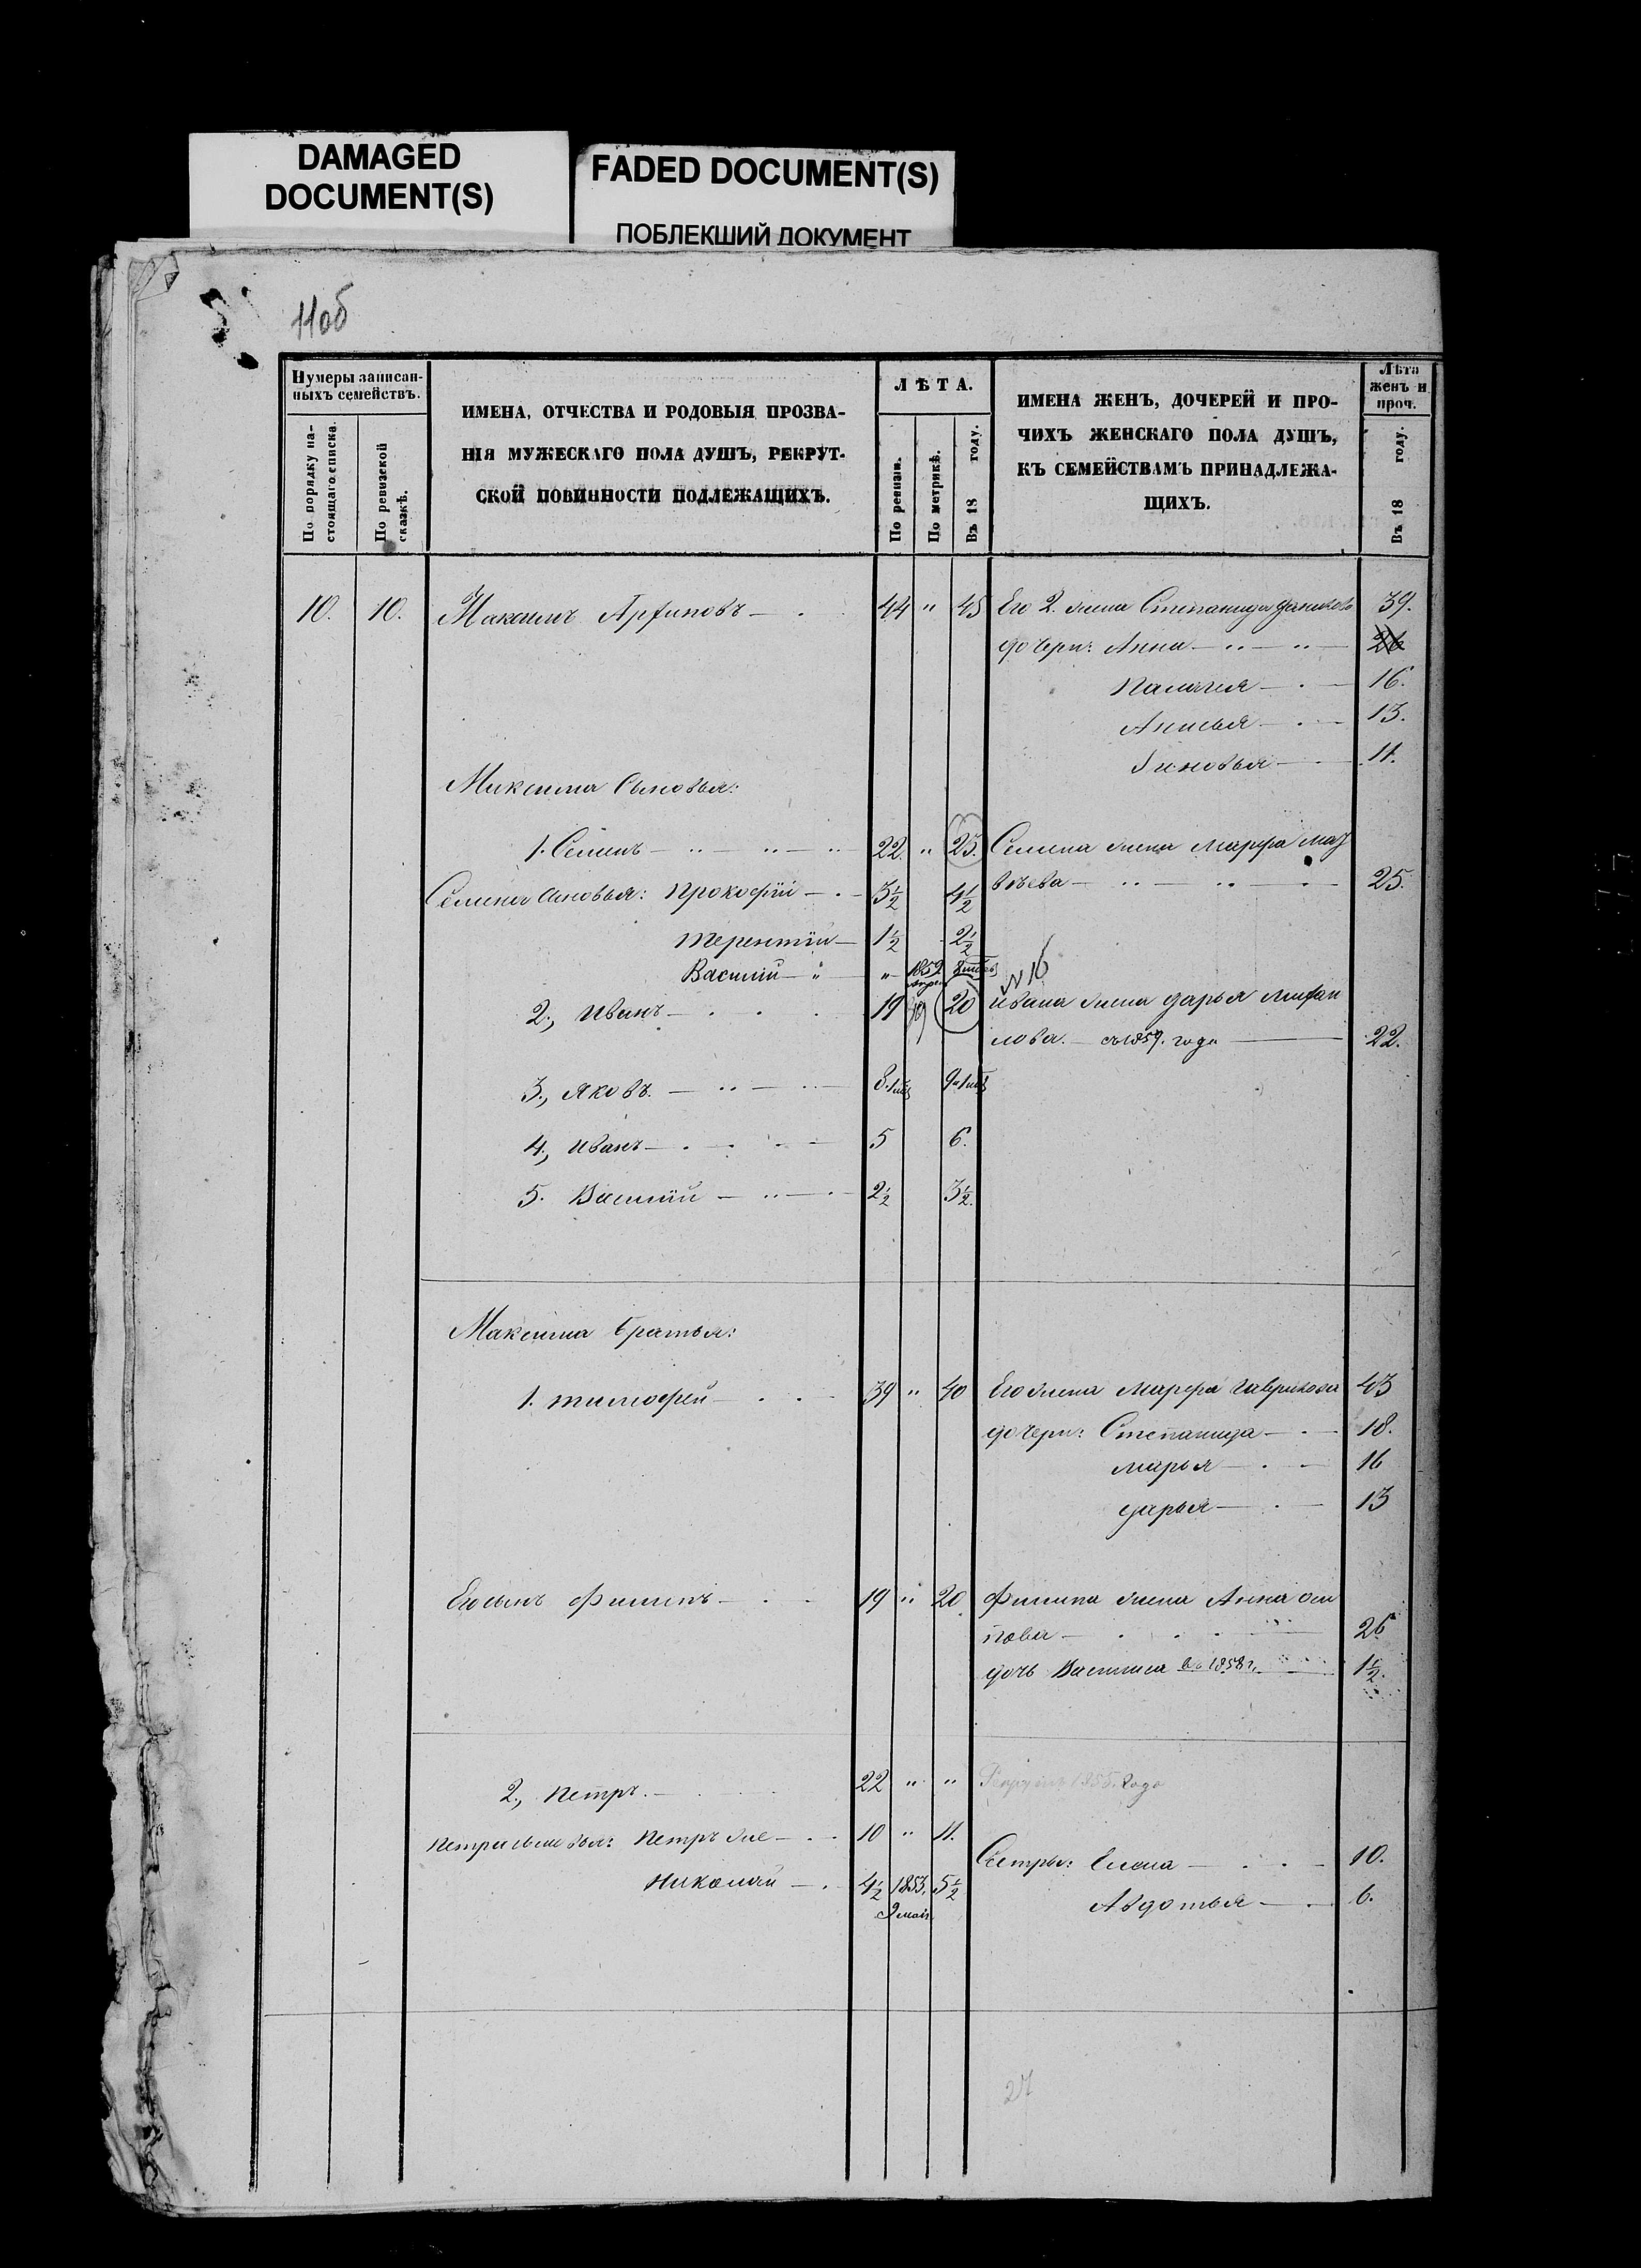 DAMAGED
DOCUMENT(S)
FADED DOCUMENT(S)
ПОБЛЕКШИЙ ДОКУМЕНТ
11об
Нумеры записан-
ныхъ семействъ.
По порядку на-
стоящаго списка.
По ревизской
сказкѣ.
ИМЕНА, ОТЧЕСТВА И РОДОВЫЯ ПРОЗВА-
НІЯ МУЖЕСКАГО ПОЛА ДУШЪ, РЕКРУТ-
СКОЙ ПОВИННОСТИ ПОДЛЕЖАЩИХЪ.
ЛѢТА.
По ревизіи.
По метрикѣ.
Въ 18 году.
ИМЕНА ЖЕНЪ, ДОЧЕРЕЙ И ПРО-
ЧИХЪ ЖЕНСКАГО ПОЛА ДУШЪ,
КЪ СЕМЕЙСТВАМЪ ПРИНАДЛЕЖА-
ЩИХЪ.
Лѣта
женъ и
проч.
Въ 18 году.
10. 10. Максимъ 44 " 45 Его 2. жена Степанида 39.
дочери: Анна 26
Палагея 16.
Анисья 13.
Зиновья 11.
Максима Сыновья:
1. Семенъ 22. " 23. Семена жена Марфа Мат
вѣева 25.
Семена Сыновья: Прокофій 3½ 4½
Терентій 1½ 2½
Василій " 1859
№ 16
2., Иванъ 19 20 Ивана жена Дарья
лова. съ 1859. года 22.
3., Яковъ. 8. 9.
4., Иванъ 5 6.
5. Василій 2½ 3½.
Максима братья:
1. Тимофей 39 " 40 Его жена Марфа Гаврилова 43
дочери: Степанида 18.
Марья 16
Дарья 13
Его сынъ Филипъ 19 " 20 Филипа жена Анна Оси
пова 26
дочь Василиса въ 1858 г. 1½.
2., Петръ. 22 " " 1855. года
Петра сыновья: Петръ же 10 " 11.
Сестры: Елена 10.
Николай 4½ 1853. 5½
9 мая
Авдотья 6.